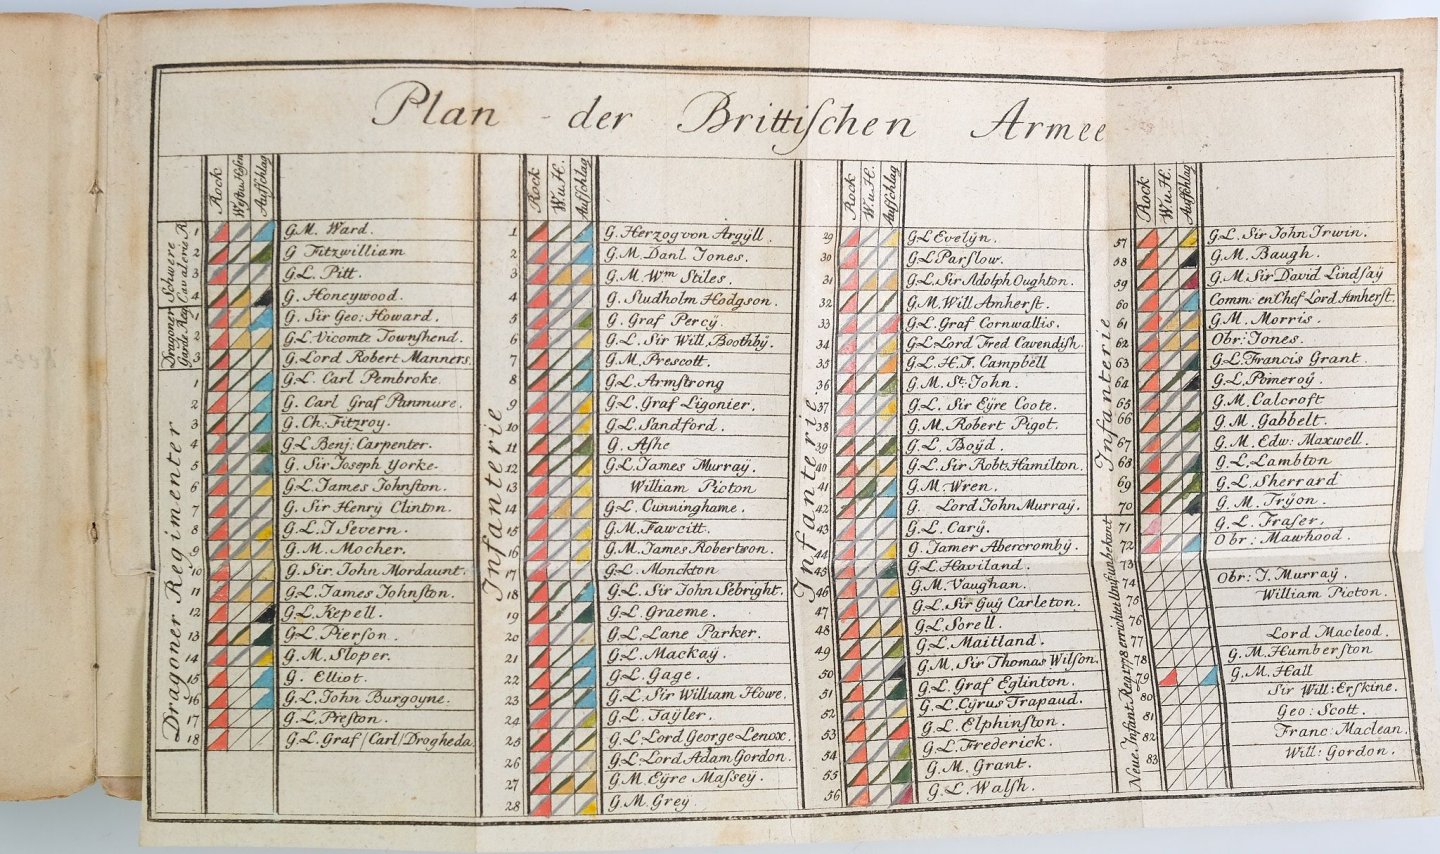 Plan der Brittiſchen Armee
Rock Weſte u Hoſen Aufſchlag
Schwere Cavalerie R.
1 G.M. Ward.
2 G Fitzwilliam
3 G.L. Pitt.
4 G. Honeywood.
Dragoner Garde Reg.
1 G. Sir Geo: Howard.
2 G.L. Vicomte Townſhend.
3 G. Lord Robert Manners.
Dragoner Regimenter
1 G.L. Carl Pembroke.
2 G. Carl Graf Panmure.
3 G. Ch: Fitzroy.
4 G.L. Benj: Carpenter.
5 G. Sir Joseph Yorke.
6 G.L. James Johnſton.
7 G. Sir Henry Clinton.
8 G.L. J Severn.
9 G.M. Mocher.
10 G. Sir. John Mordaunt.
11 G.L. James Johnſton.
12 G.L. Kepell.
13 G.L. Pierſon.
14 G.M. Sloper.
15 G. Elliot.
16 G.L. John Burgoyne.
17 G.L. Preſton.
18 G.L. Graf /Carl/ Drogheda.
Rock W. u. H. Aufſchlag
Infanterie
1 G. Herzog von Argÿll.
2 G.M. Danl Jones.
3 G.M. Wm Stiles.
4 G. Studholm Hodgson.
5 G. Graf Percÿ.
6 G.L. Sir Will. Boothbÿ.
7 G.M. Prescott.
8 G.L. Armſtrong
9 G.L. Graf Ligonier.
10 G.L. Sandford.
11 G. Aſhe
12 G.L. James Murraÿ.
13 William Picton
14 G.L. Cunninghame.
15 G.M. Fawcitt.
16 G.M. James Robertson.
17 G.L. Monckton
18 G.L. Sir John Sebright.
19 G.L. Graeme.
20 G.L. Lane Parker.
21 G.L. Mackaÿ.
22 G.L. Gage.
23 G.L. Sir William Howe.
24 G.L. Taÿler.
25 G.L. Lord George Lenox.
26 G.L. Lord Adam Gordon.
27 G.M. Eÿre Maſseÿ.
28 G.M. Greÿ
Rock W. u. H. Aufſchlag
Infanterie.
29 G.L Evelÿn.
30 G.L Parſlow.
31 G.L. Sir Adolph Oughton.
32 G.M. Will Amherſt.
33 G.L. Graf Cornwallis.
34 G.L Lord Fred Cavendiſh.
35 G.L. H.F. Campbell
36 G.M. St: John.
37 G.L. Sir Eÿre Coote.
38 G.M. Robert Pigot.
39 G.L. Boÿd.
40 G.L. Sir Robt: Hamilton.
41 G.M. Wren.
42 G. Lord John Murraÿ.
43 G.L. Carÿ.
44 G. Jamer Abercrombÿ.
45 G.L. Haviland.
46 G.M. Vaughan.
47 G.L. Sir Guÿ Carleton.
48 G.L. Sorell.
49 G.L. Maitland.
50 G.M. Sir Thomas Wilſon.
51 G.L. Graf Eglinton.
52 G.L. Cÿrus Trapaud.
53 G.L. Elphinſton.
54 G.L. Frederick.
55 G.M. Grant.
56 G.L. Walſh.
Rock W. u. H. Aufſchlag
Infanterie
57 G.L. Sir John Irwin.
58 G.M. Baugh.
59 G.M. Sir David Lindſaÿ
60 Comm: en Chef Lord Amherſt.
61 G.M. Morris.
62 Obr: Jones.
63 G.L. Francis Grant.
64 G.L. Pomeroÿ.
65 G.M. Calcroft
66 G.M. Gabbelt.
67 G.M. Edw: Maxwell.
68 G.L. Lambton
69 G.L. Sherrard
70 G.M. Trÿon.
Neue Infant. Reg. 1778 errichtet Unif. unbekant
71 G.L. Fraſer.
72 Obr: Mawhood.
73
74 Obr: J. Murraÿ.
75 William Picton.
76
77 Lord Macleod.
78 G.M. Humberſton
79 G.M. Hall
80 Sir Will: Erſkine.
81 Geo: Scott.
82 Franc: Maclean.
83 Will: Gordon.